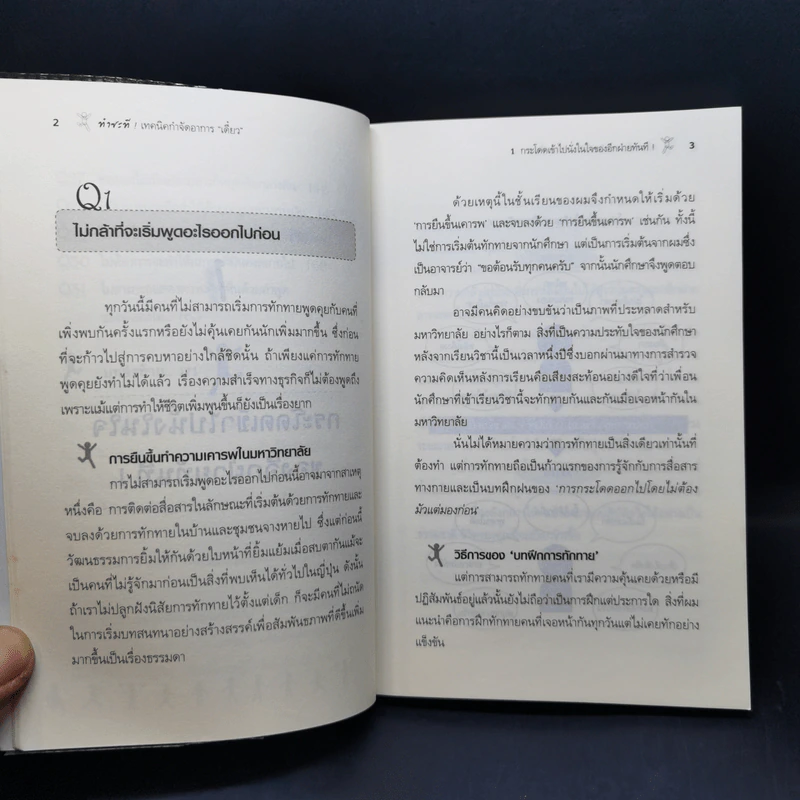 2 ทำซะที ! เทคนิคกำจัดอาการ "เดี๋ยว"
Q1
ไม่กล้าที่จะเริ่มพูดอะไรออกไปก่อน
ทุกวันนี้มีคนที่ไม่สามารถเริ่มการทักทายพูดคุยกับคนที่
เพิ่งพบกันครั้งแรกหรือยังไม่คุ้นเคยกันนักเพิ่มมากขึ้น ซึ่งก่อน
ที่จะก้าวไปสู่การคบหาอย่างใกล้ชิดนั้น ถ้าเพียงแค่การทักทาย
พูดคุยยังทำไม่ได้แล้ว เรื่องความสำเร็จทางธุรกิจก็ไม่ต้องพูดถึง
เพราะแม้แต่การทำให้ชีวิตเพิ่มพูนขึ้นก็ยังเป็นเรื่องยาก
การยืนขึ้นทำความเคารพในมหาวิทยาลัย
การไม่สามารถเริ่มพูดอะไรออกไปก่อนนี้อาจมาจากสาเหตุ
หนึ่งคือ การติดต่อสื่อสารในลักษณะที่เริ่มต้นด้วยการทักทายและ
จบลงด้วยการทักทายในบ้านและชุมชนจางหายไป ซึ่งแต่ก่อนนี้
วัฒนธรรมการยิ้มให้กันด้วยใบหน้าที่ยิ้มแย้มเมื่อสบตากันแม้จะ
เป็นคนที่ไม่รู้จักมาก่อนเป็นสิ่งที่พบเห็นได้ทั่วไปในญี่ปุ่น ดังนั้น
ถ้าเราไม่ปลูกฝังนิสัยการทักทายไว้ตั้งแต่เด็ก ก็จะมีคนที่ไม่ถนัด
ในการเริ่มบทสนทนาอย่างสร้างสรรค์เพื่อสัมพันธภาพที่ดีขึ้นเพิ่ม
มากขึ้นเป็นเรื่องธรรมดา
1 กระโดดเข้าไปนั่งในใจของอีกฝ่ายทันที ! 3
ด้วยเหตุนี้ในชั้นเรียนของผมจึงกำหนดให้เริ่มด้วย
'การยืนขึ้นเคารพ' และจบลงด้วย 'การยืนขึ้นเคารพ' เช่นกัน ทั้งนี้
ไม่ใช่การเริ่มต้นทักทายจากนักศึกษา แต่เป็นการเริ่มต้นจากผมซึ่ง
เป็นอาจารย์ว่า "ขอต้อนรับทุกคนครับ" จากนั้นนักศึกษาจึงพูดตอบ
กลับมา
อาจมีคนคิดอย่างขบขันว่าเป็นภาพที่ประหลาดสำหรับ
มหาวิทยาลัย อย่างไรก็ตาม สิ่งที่เป็นความประทับใจของนักศึกษา
หลังจากเรียนวิชานี้เป็นเวลาหนึ่งปีซึ่งบอกผ่านมาทางการสำรวจ
ความคิดเห็นหลังการเรียนคือเสียงสะท้อนอย่างดีใจที่ว่าเพื่อน
นักศึกษาที่เข้าเรียนวิชานี้จะทักทายกันและกันเมื่อเจอหน้ากันใน
มหาวิทยาลัย
นั่นไม่ได้หมายความว่าการทักทายเป็นสิ่งเดียวเท่านั้นที่
ต้องทำ แต่การทักทายถือเป็นก้าวแรกของการรู้จักกับการสื่อสาร
ทางกายและเป็นบทฝึกฝนของ 'การกระโดดออกไปโดยไม่ต้อง
มัวแต่มองก่อน'
วิธีการของ 'บทฝึกการทักทาย'
แต่การสามารถทักทายคนที่เรามีความคุ้นเคยด้วยหรือมี
ปฏิสัมพันธ์อยู่แล้วนั้นยังไม่ถือว่าเป็นการฝึกแต่ประการใด สิ่งที่ผม
แนะนำคือการฝึกทักทายคนที่เจอหน้ากันทุกวันแต่ไม่เคยทักอย่าง
แข็งขัน